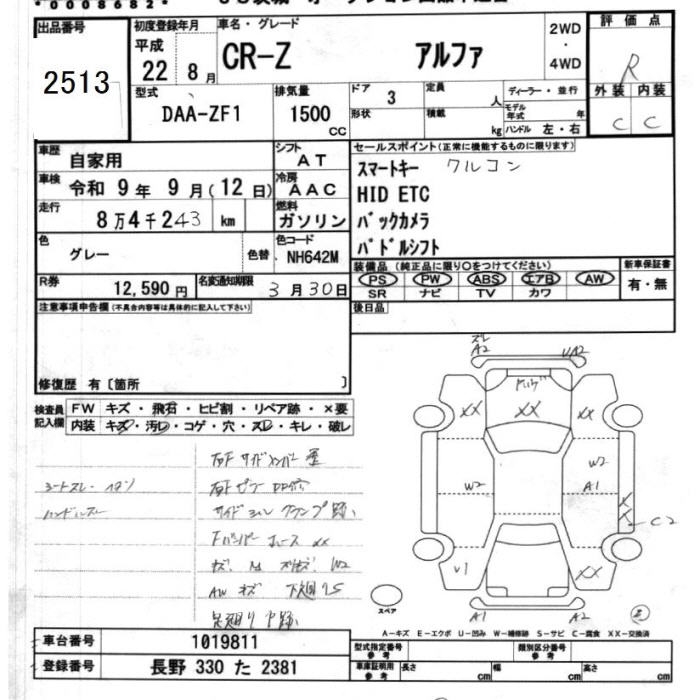 *0008682*
出品番号
2513
初度登録年月
平成
22 8月
車名・グレード
CR-Z アルファ
2WD
・
4WD
評価点
R
外装 内装
C C
型式
DAA-ZF1
排気量
1500
cc
ドア 3
形状
定員 人
積載 kg
ディーラー・並行
モデル年式 年
ハンドル 左・右
車歴 自家用
シフト AT
車検 令和 9年 9月(12日)
冷房 AAC
走行 8万4千243 km
燃料 ガソリン
色 グレー 色替
色コード NH642M
R券 12,590円
名変通知期限 3月30日
セールスポイント(正常に機能するものに限ります)
スマートキー クルコン
HID ETC
バックカメラ
パドルシフト
装備品 (純正品に限り○をつけてください)
PS PW ABS エアB AW
SR ナビ TV カワ
新車保証書
有・無
後日品
注意事項申告欄(不具合内容等は具体的に記入して下さい)
修復歴 有〔箇所 〕
検査員記入欄
FW キズ・飛石・ヒビ割・リペア跡・×要
内装 キズ・汚レ・コゲ・穴・スレ・キレ・破レ
シートスレ・
ハンドルスレ
サイドシル クランプ跡
AW キズ 下廻りS
スレ
A2
UA2
XX XX XX
W2
W2
A1
X
X
C2
V1
XX
A1
A2
スペア
A-キズ E-エクボ U-凹み W-補修跡 S-サビ C-腐食 XX-交換済
車台番号 1019811
登録番号 長野 330 た 2381
型式指定番号 参考
類別区分番号 参考
車庫証明用 参考
長さ cm 幅 cm 高さ cm